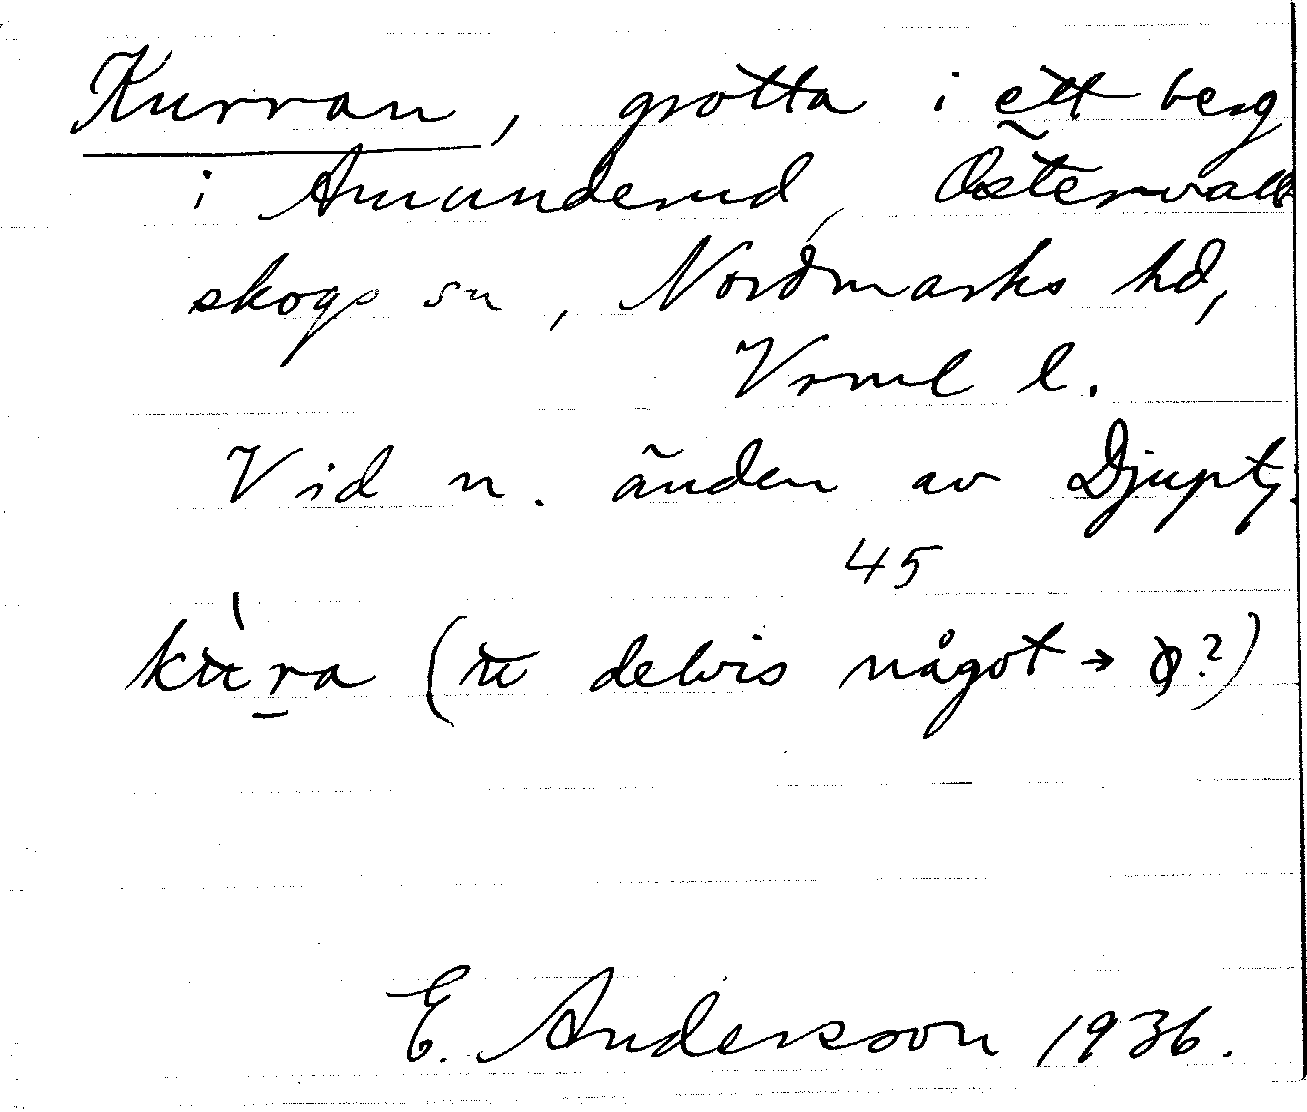 Kurran, grotta i ett berg
i Amunderud, Östervall
skogs sn, Nordmarks hd,
Vrml l.
Vid n. änden av Djupt.
45
kʉ̀ra (ʉ delvis något → ?)
E. Andersson 1936.